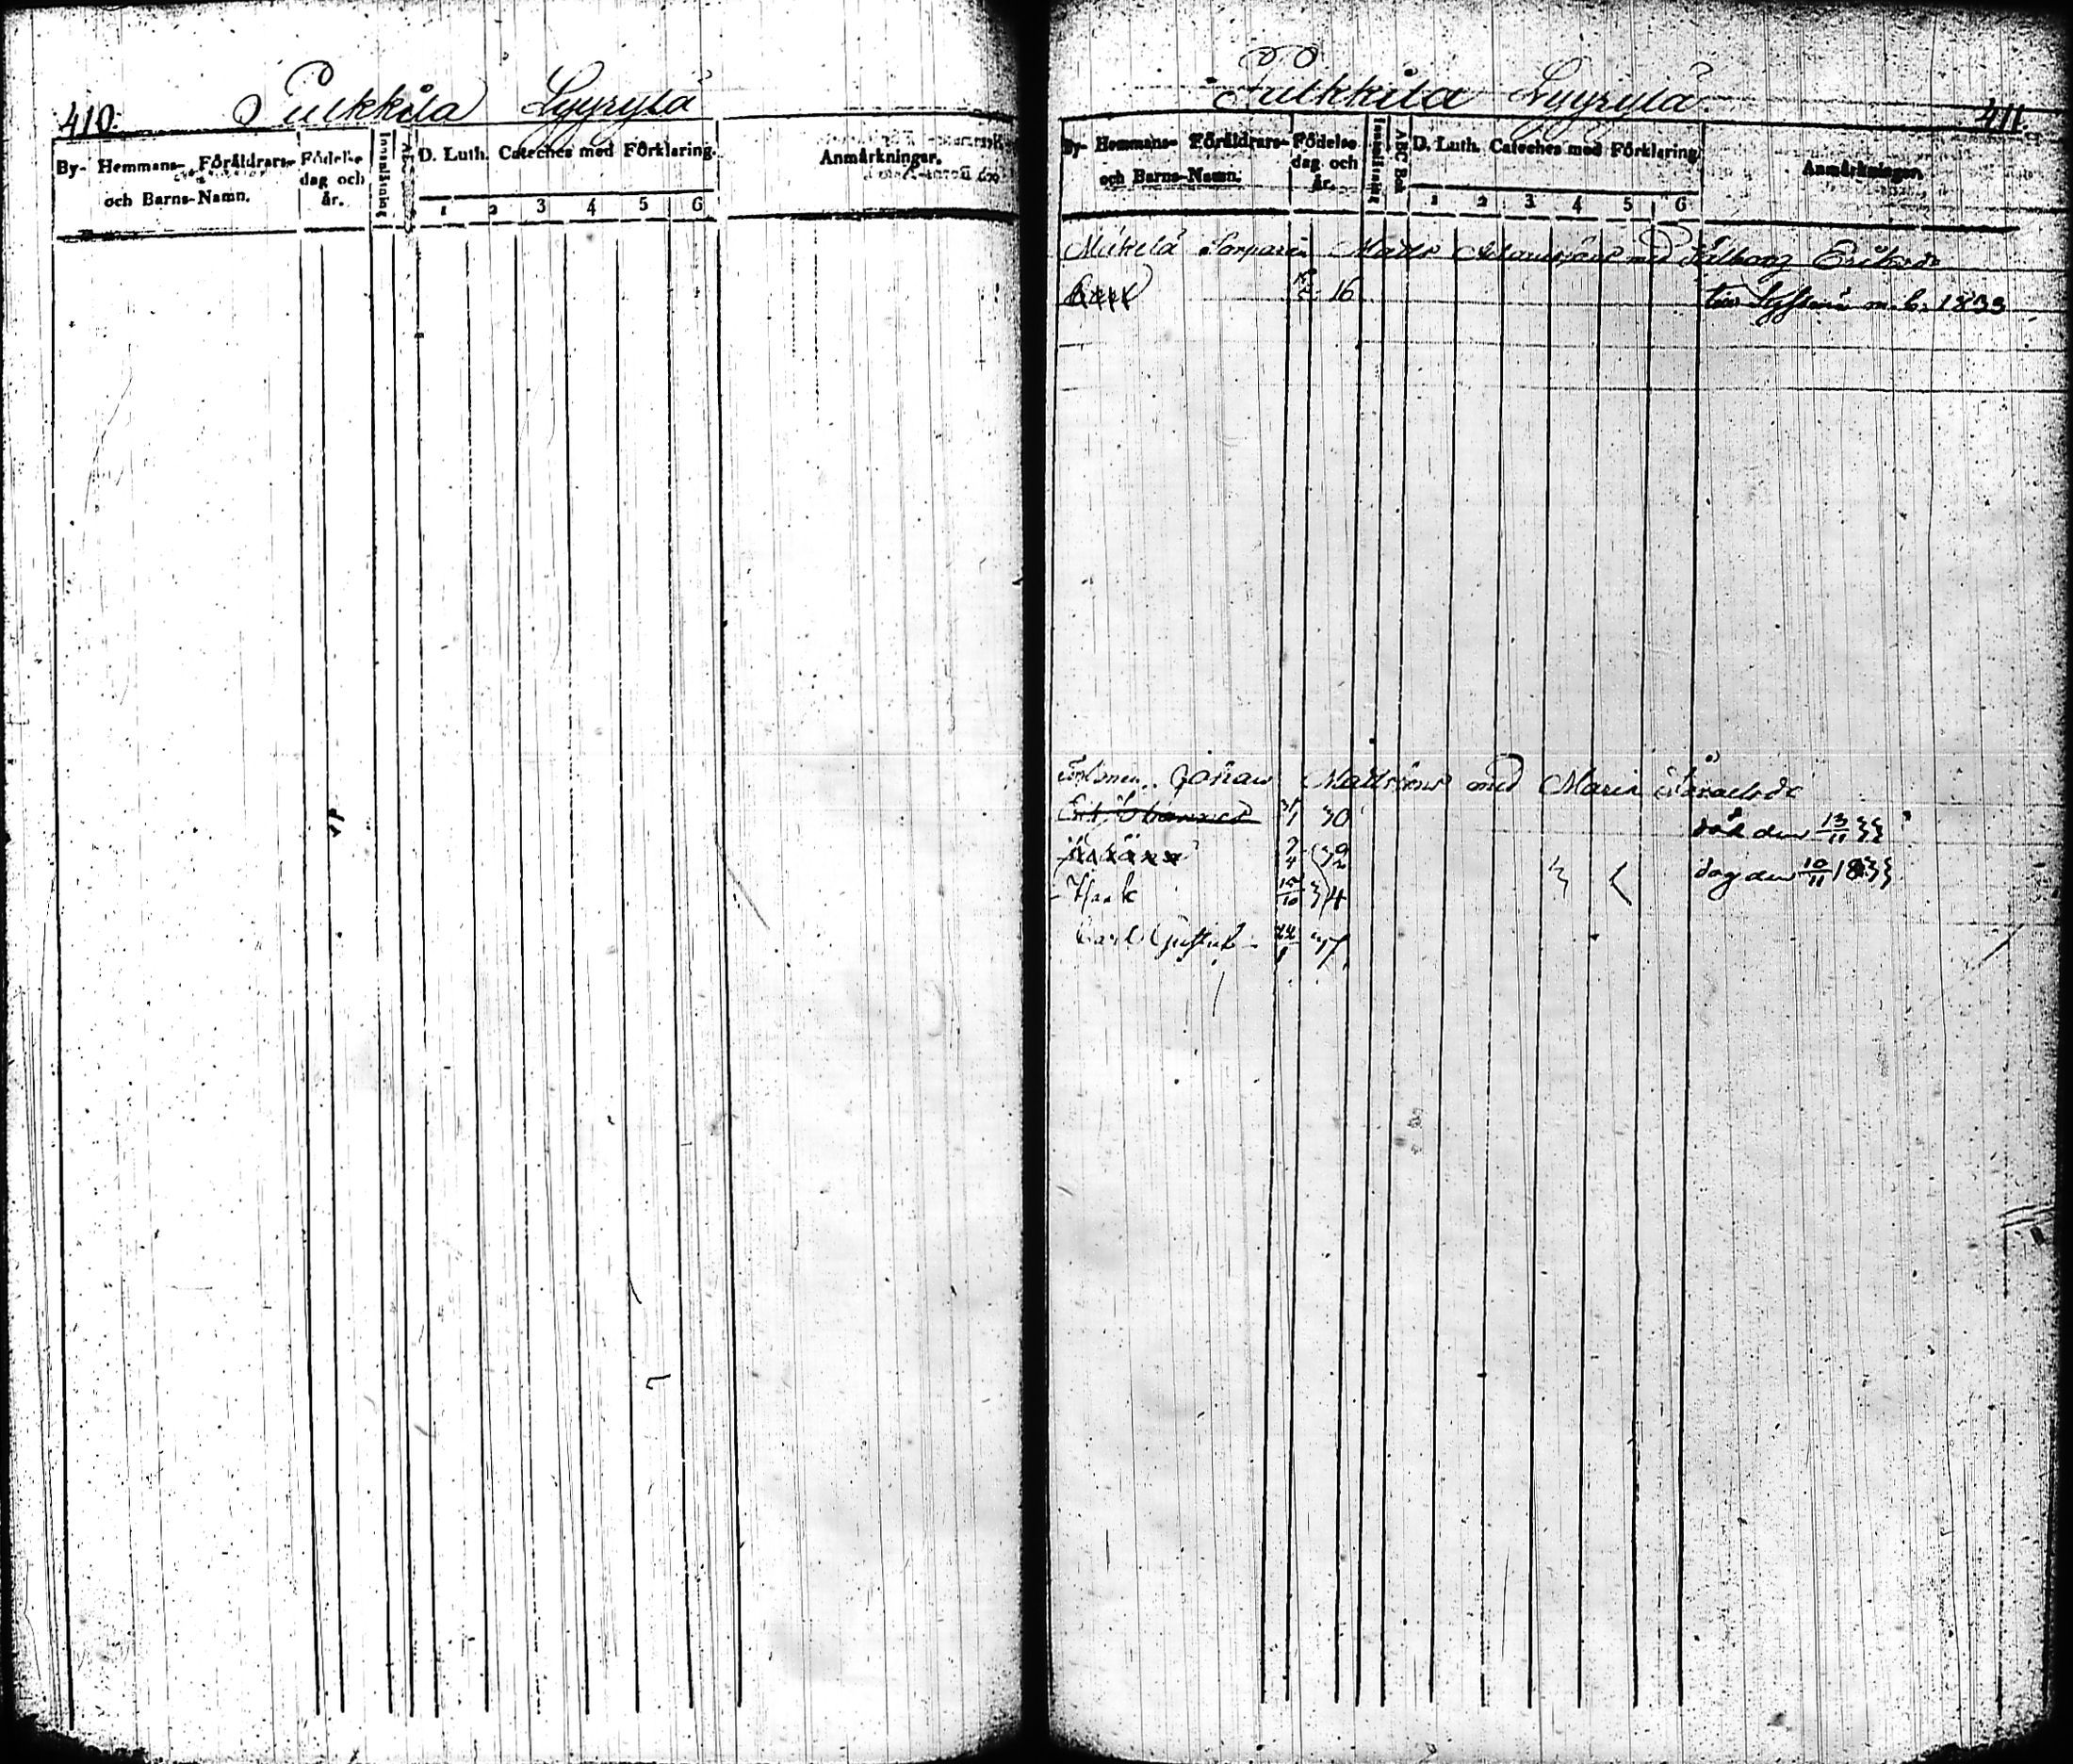 410. Pulkkila Lyyrylä
By- Hemmans- Föräldrars- och Barns-Namn.
Födelse dag och år.
Innanläsning
ABC
D. Luth. Cateches med Förklaring.
1 2 3 4 5 6
Anmärkningar.
Pulkkila Lyyrylä 411.
By- Hemmans- Föräldrars- och Barns-Namn.
Födelse dag och år.
Innanläsning
ABC Bok
D. Luth. Cateches med Förklaring
1 2 3 4 5 6
Anmärkningar.
Mikelä Matts Adamsson med Valborg Eriksdr
16 m. b. 1833
Johan Mattsson med Maria
Erik Johannes 31/1 30 död den 13/11 33
7/4 32 dog den 10/11 1833
Isaak 15/10 34
Carl Gustaf 22/1 37